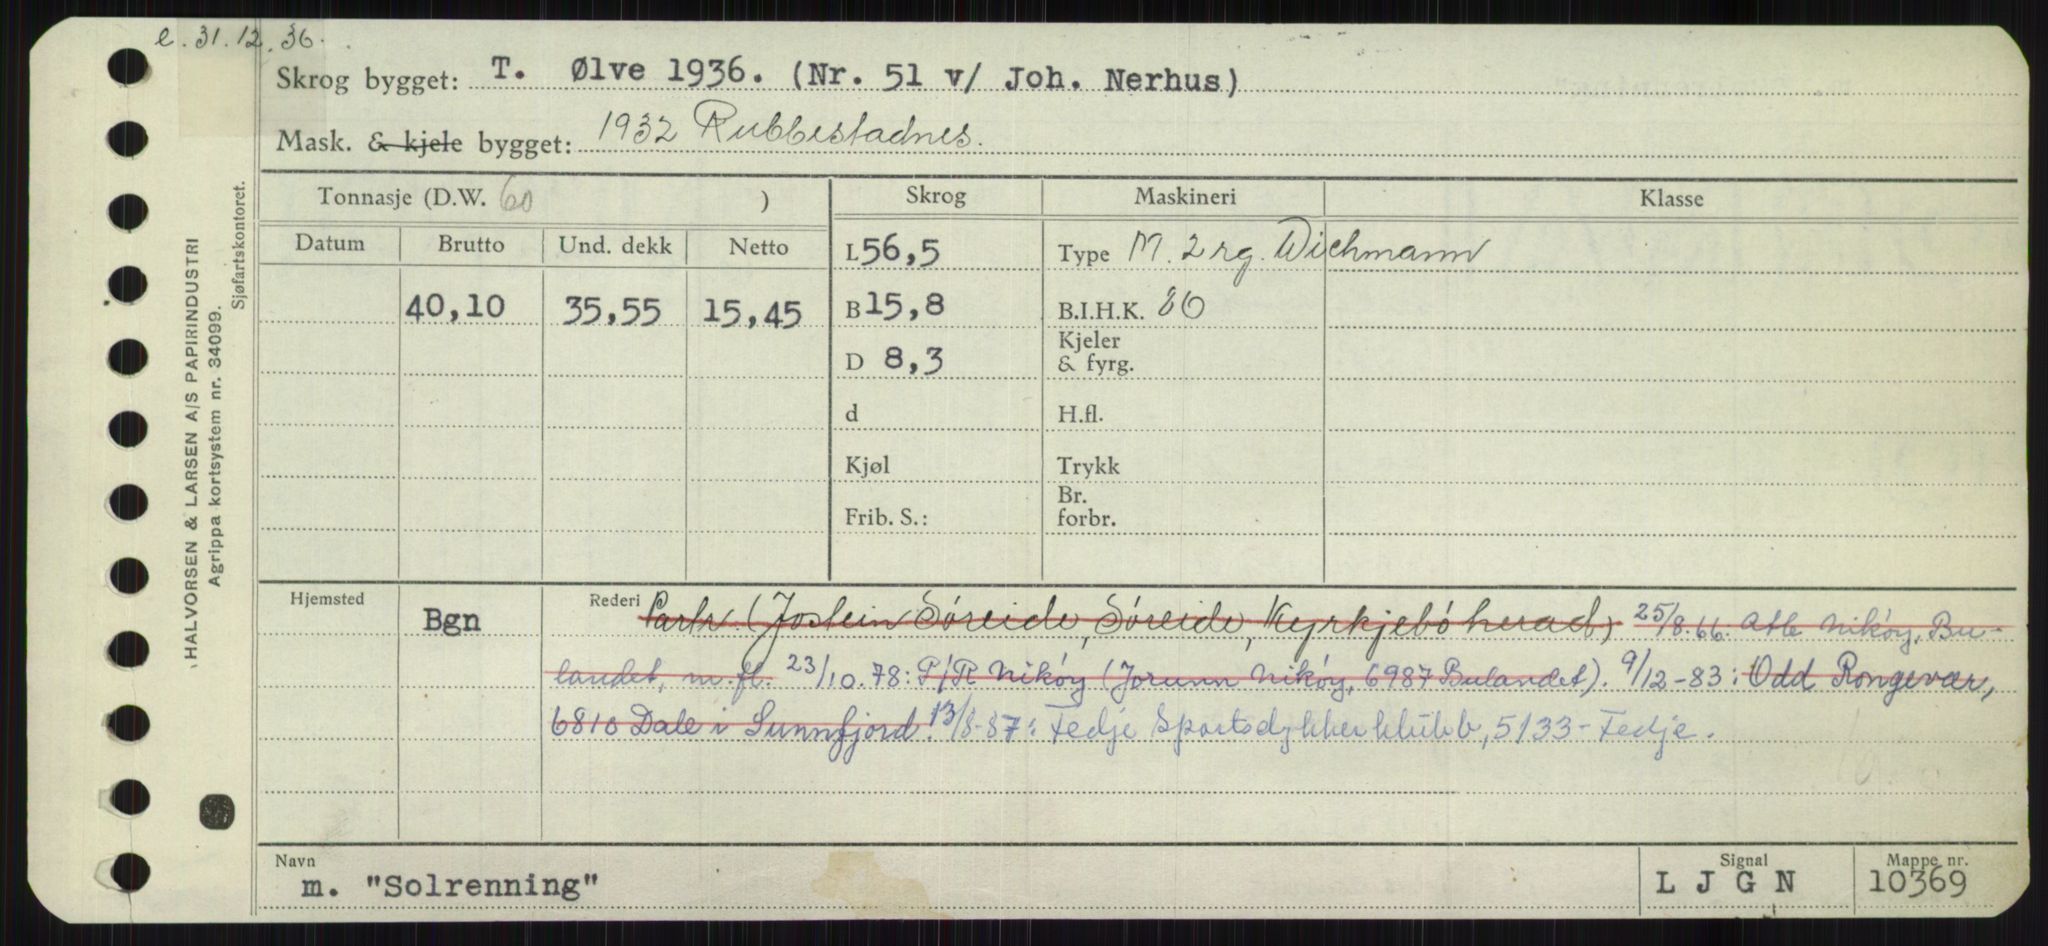 e. 31.12.36.
Skrog bygget: T. Ølve 1936. (Nr. 51 v/ Joh. Nerhus)
Mask. & kjele bygget: 1932 Rubbestadnes.
Tonnasje (D.W. 60 ) Skrog Maskineri Klasse
Datum Brutto Und. dekk Netto L 56,5 Type M. 2 rg. Wichmann
40,10 35,55 15,45 B 15,8 B.I.H.K.
D 8,3 Kjeler
& fyrg.
d H.fl.
Kjøl Trykk
Frib. S.: Br.
forbr.
Hjemsted Bgn Rederi Partr. (Jostein Søreide, Søreide, Kyrkjebø herad) 25/8.66. Atle Nikøy, Bu-
landet, m.fl. 23/10.78: P/R Nikøy (Jorunn Nikøy, 6987 Bulandet). 9/12-83: Odd Rongevær,
6810 Dale i Sunnfjord. 13/8-87: Fedje Sportsdykker klubb, 5133-Fedje.
Navn Signal Mappe nr.
m. "Solrenning" L J G N 10369
HALVORSEN & LARSEN A/S PAPIRINDUSTRI
Agrippa kortsystem nr. 34099.
Sjøfartskontoret.